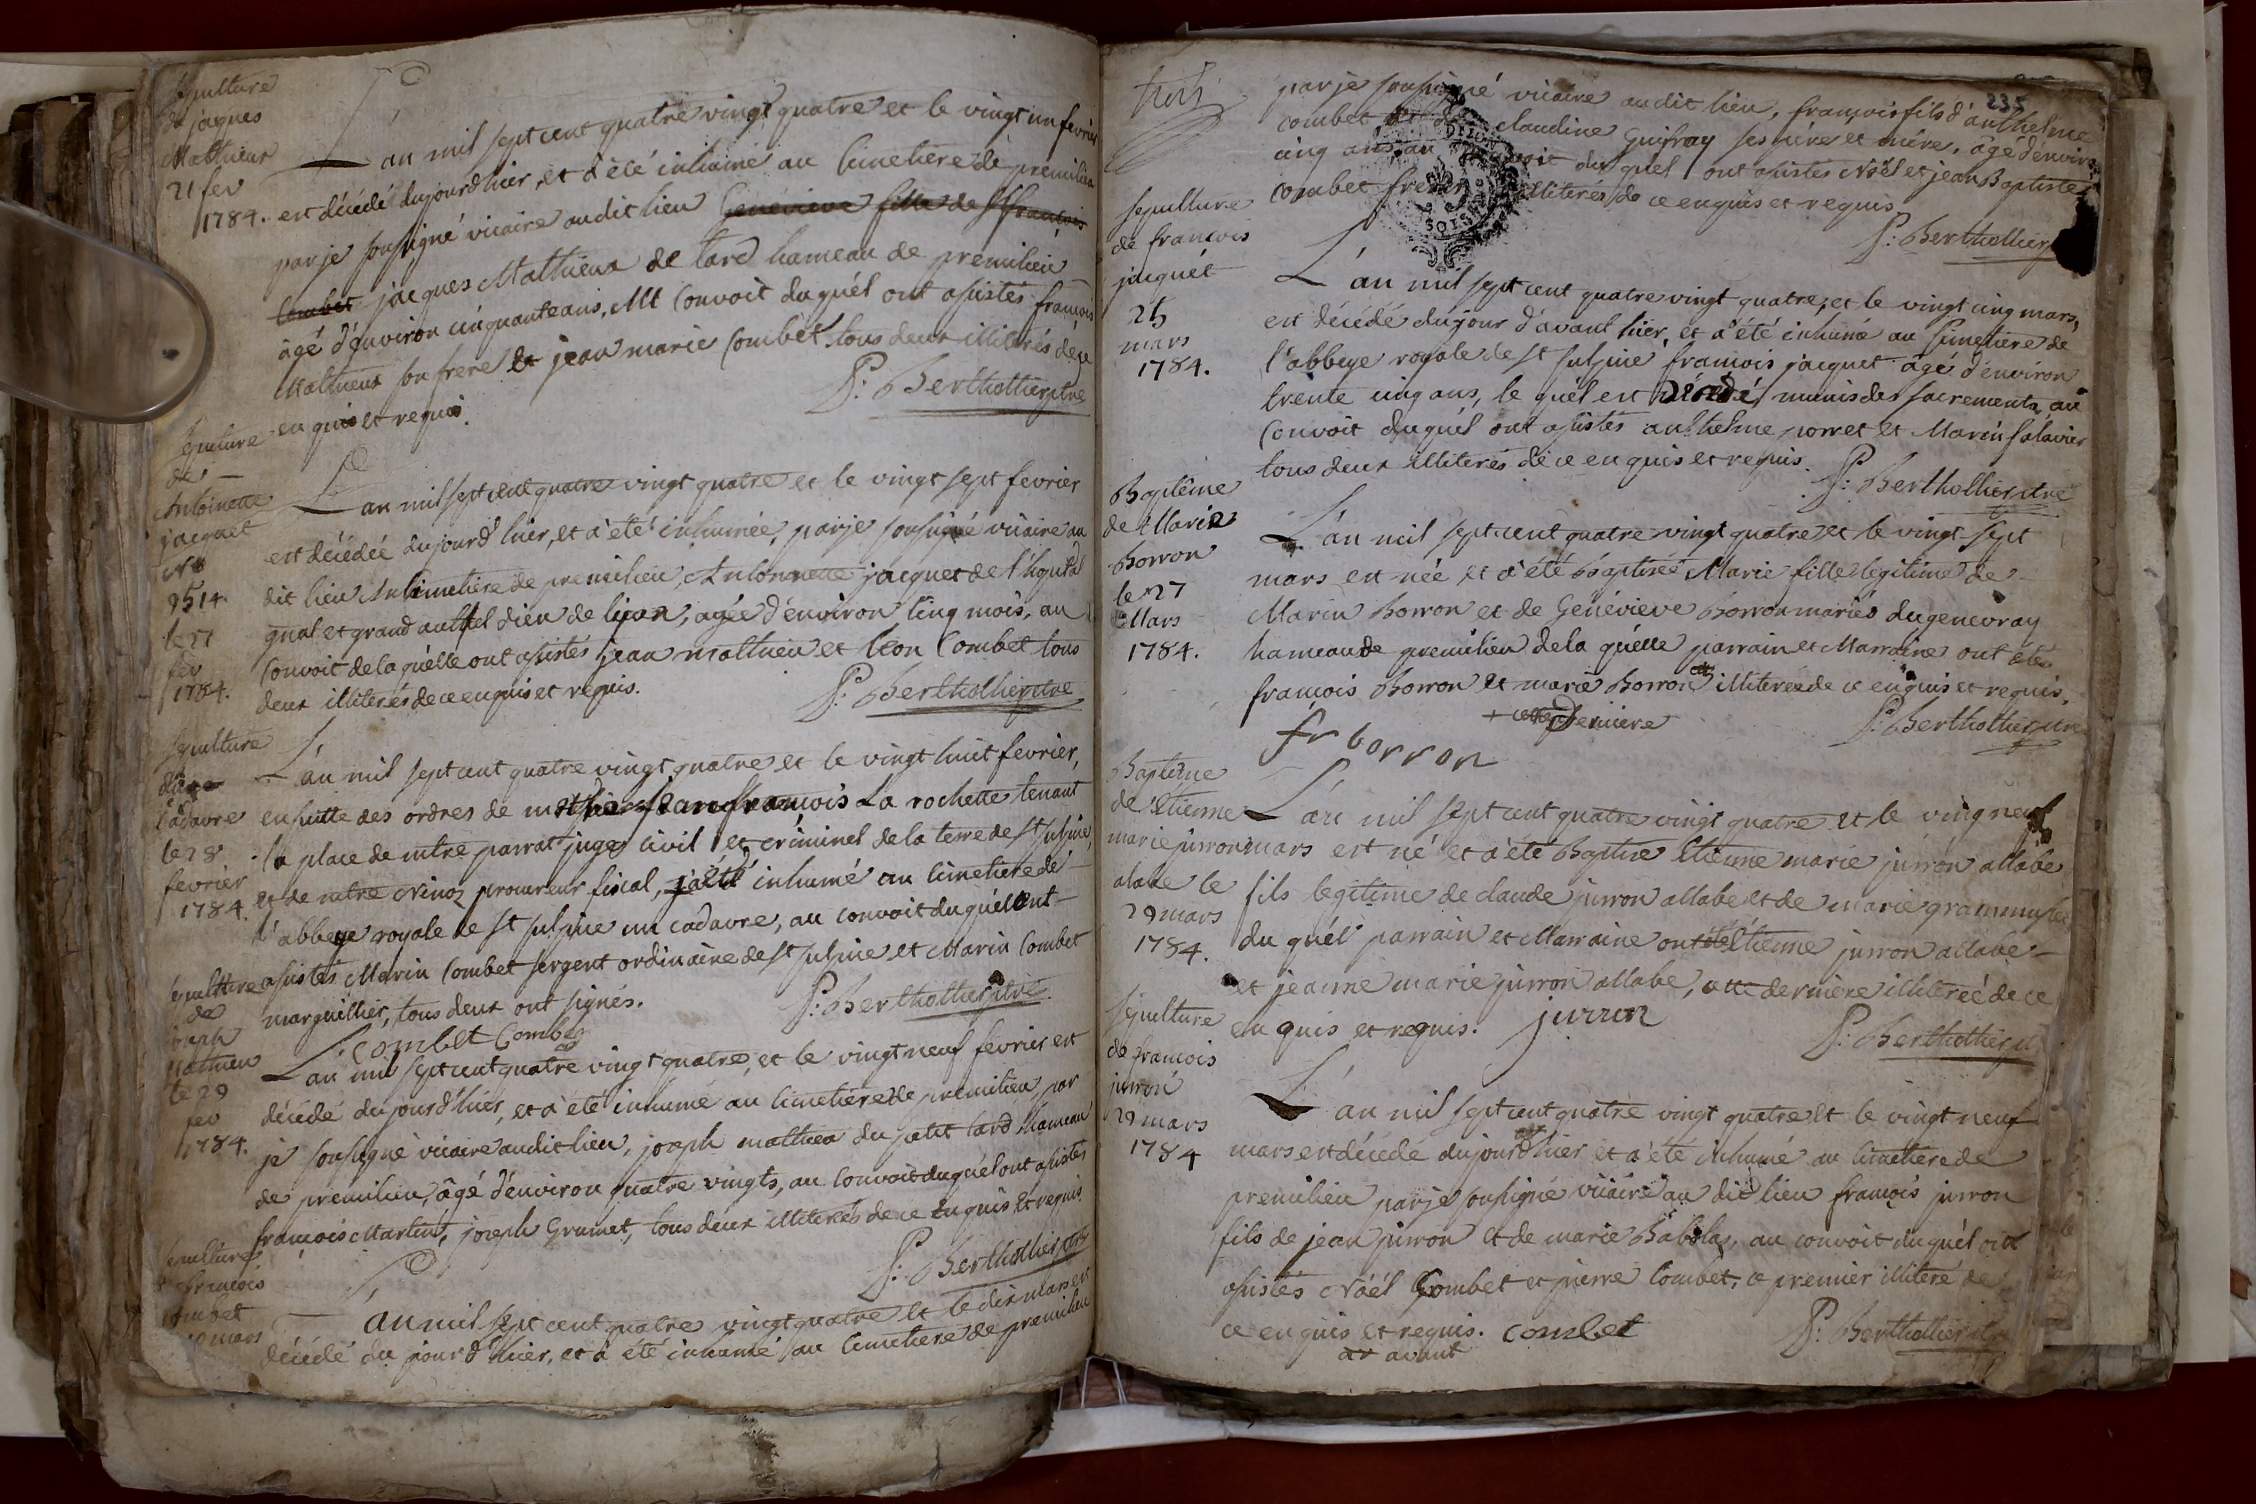 sepulture
de jaques
Mathieux
21 fev
1784.
L'an mil sept cent quatre vingt quatre et le vingt un fevrier
est décédé dujourd'hier, et a été inhumé au Cimetiere de premilieu
par je soussigné vicaire audit lieu Genevieve fille de françois
Combet jacques Mathieux de lard hameau de premilieu
âgé d'environ cinquante ans, au Convoit duquél ont assistés françois
Mathieux son frere et jean marie Combet tous deux illiterés de ce
enquis et requis.
P: Berthollier ptre
sepulture
de
Antoinette
jacquet
9514
le 27
fev
1784.
L'an mil sept cent quatre vingt quatre et le vingt sept fevrier
est décédée dujourd'hier, et a été inhumée, par je soussigné vicaire au
dit lieu Au Cimetiere de premilieu, Antoinette jacquet de l'hopital
gñal et grand authel dieu de lyon, agée d'environ cinq mois, au
Convoit de laquélle ont assistés jean mathieu et leon Combet tous
deux illiterés de ce enquis et requis.
P: Berthollier ptre
sepulture
d'un
cadavre
le 28
fevrier
1784.
L'an mil sept cent quatre vingt quatre et le vingt huit fevrier,
ensuitte des ordres de jean françois La rochette tenant
la place de mtre parrat juge civil et criminel de la terre de st sulpice,
et de mtre Ninoz procureur fiscal, j'ai été inhumé au Cimetiere de
l'abbeye royale de st sulpice un cadavre, au convoit duquél ont
assistés Marin Combet sergent ordinaire de st sulpice et Marin Combet
marguillier, tous deux ont signés.
P: Berthollier ptre
Combet Combet
sepulture
de
joseph
Mathieu
le 29
fev
1784.
L'an mil sept cent quatre vingt quatre, et le vingt neuf fevrier est
décédé dujourd'hier, et a été inhumé au Cimetiere de premilieu, par
je soussigné vicaire audit lieu, joseph mathieu du petit lard hameau
de premilieu, âgé d'environ quatre vingts, au Convoit duquél ont assistés
françois Martin, joseph Grumet, tous deux illiterés de ce enquis et requis.
P: Berthollier ptre
sepulture
françois
Combet
10 mars
L'an mil sept cent quatre vingt quatre et le dix mars est
décédé du jourd'hier, et a été inhumé au Cimetiere de premilieu
235
par je soussigné vicaire audit lieu, françois fils d'anthelme
Combet et de claudine Guifray ses pére et mére, agé d'environ
cinq ans, au Convoit duquel ont assistés Noël et jean Baptiste
Combet freres illiterés de ce enquis et requis.
P: Berthollier
sepulture
de françois
jacquet
25
mars
1784.
L'an mil sept cent quatre vingt quatre, et le vingt cinq mars,
est décédé dujour d'avant hier, et a été inhumé au Cimetiere de
l'abbeye royale de st sulpice françois jacquet agé d'environ
trente cinq ans, le quél est Décédé munis des sacrements, au
Convoit duquél ont assistés anthelme porret et Marin salavier
tous deux illiterés de ce enquis et requis.
P: Berthollier ptre
Baptême
de Marie
Borron
le 27
Mars
1784.
L'an mil sept cent quatre vingt quatre et le vingt sept
mars est née et a été Baptisée Marie fille legitime de
Marin Borron et de Genévieve Borron mariés du genevray
hameau de premilieu de la quélle parrain et Marraine ont étés
françois Borron et marie Borron illiterée de ce enquis et requis.
+ cette Derniere
P: Berthollier ptre
fr borron
Baptême
de Etienne
marie jurron
alabe le
29 mars
1784.
L'an mil sept cent quatre vingt quatre et le vingt neuf
mars est né et a été Baptisé Etienne marie jurron allabe
fils legitime de claude jurron allabe et de marie
du quél parrain et Marraine ont été Etienne jurron allabe
et jeanne marie jurron allabe, cette derniere illiterée de ce
enquis et requis. jurron
P: Berthollier
sepulture
de françois
jurron
29 mars
1784
L'an mil sept cent quatre vingt quatre et le vingt neuf
mars est décédé dujourd'hier et a été inhumé au Cimetiere de
premilieu par je soussigné vicaire au dit lieu françois jurron
fils de jean jurron et de marie Babolaz, au convoit duquél ont
assistés Noël Combet et pierre Combet, ce premier illiteré de
ce enquis et requis. combet
avant
P: Berthollier ptre